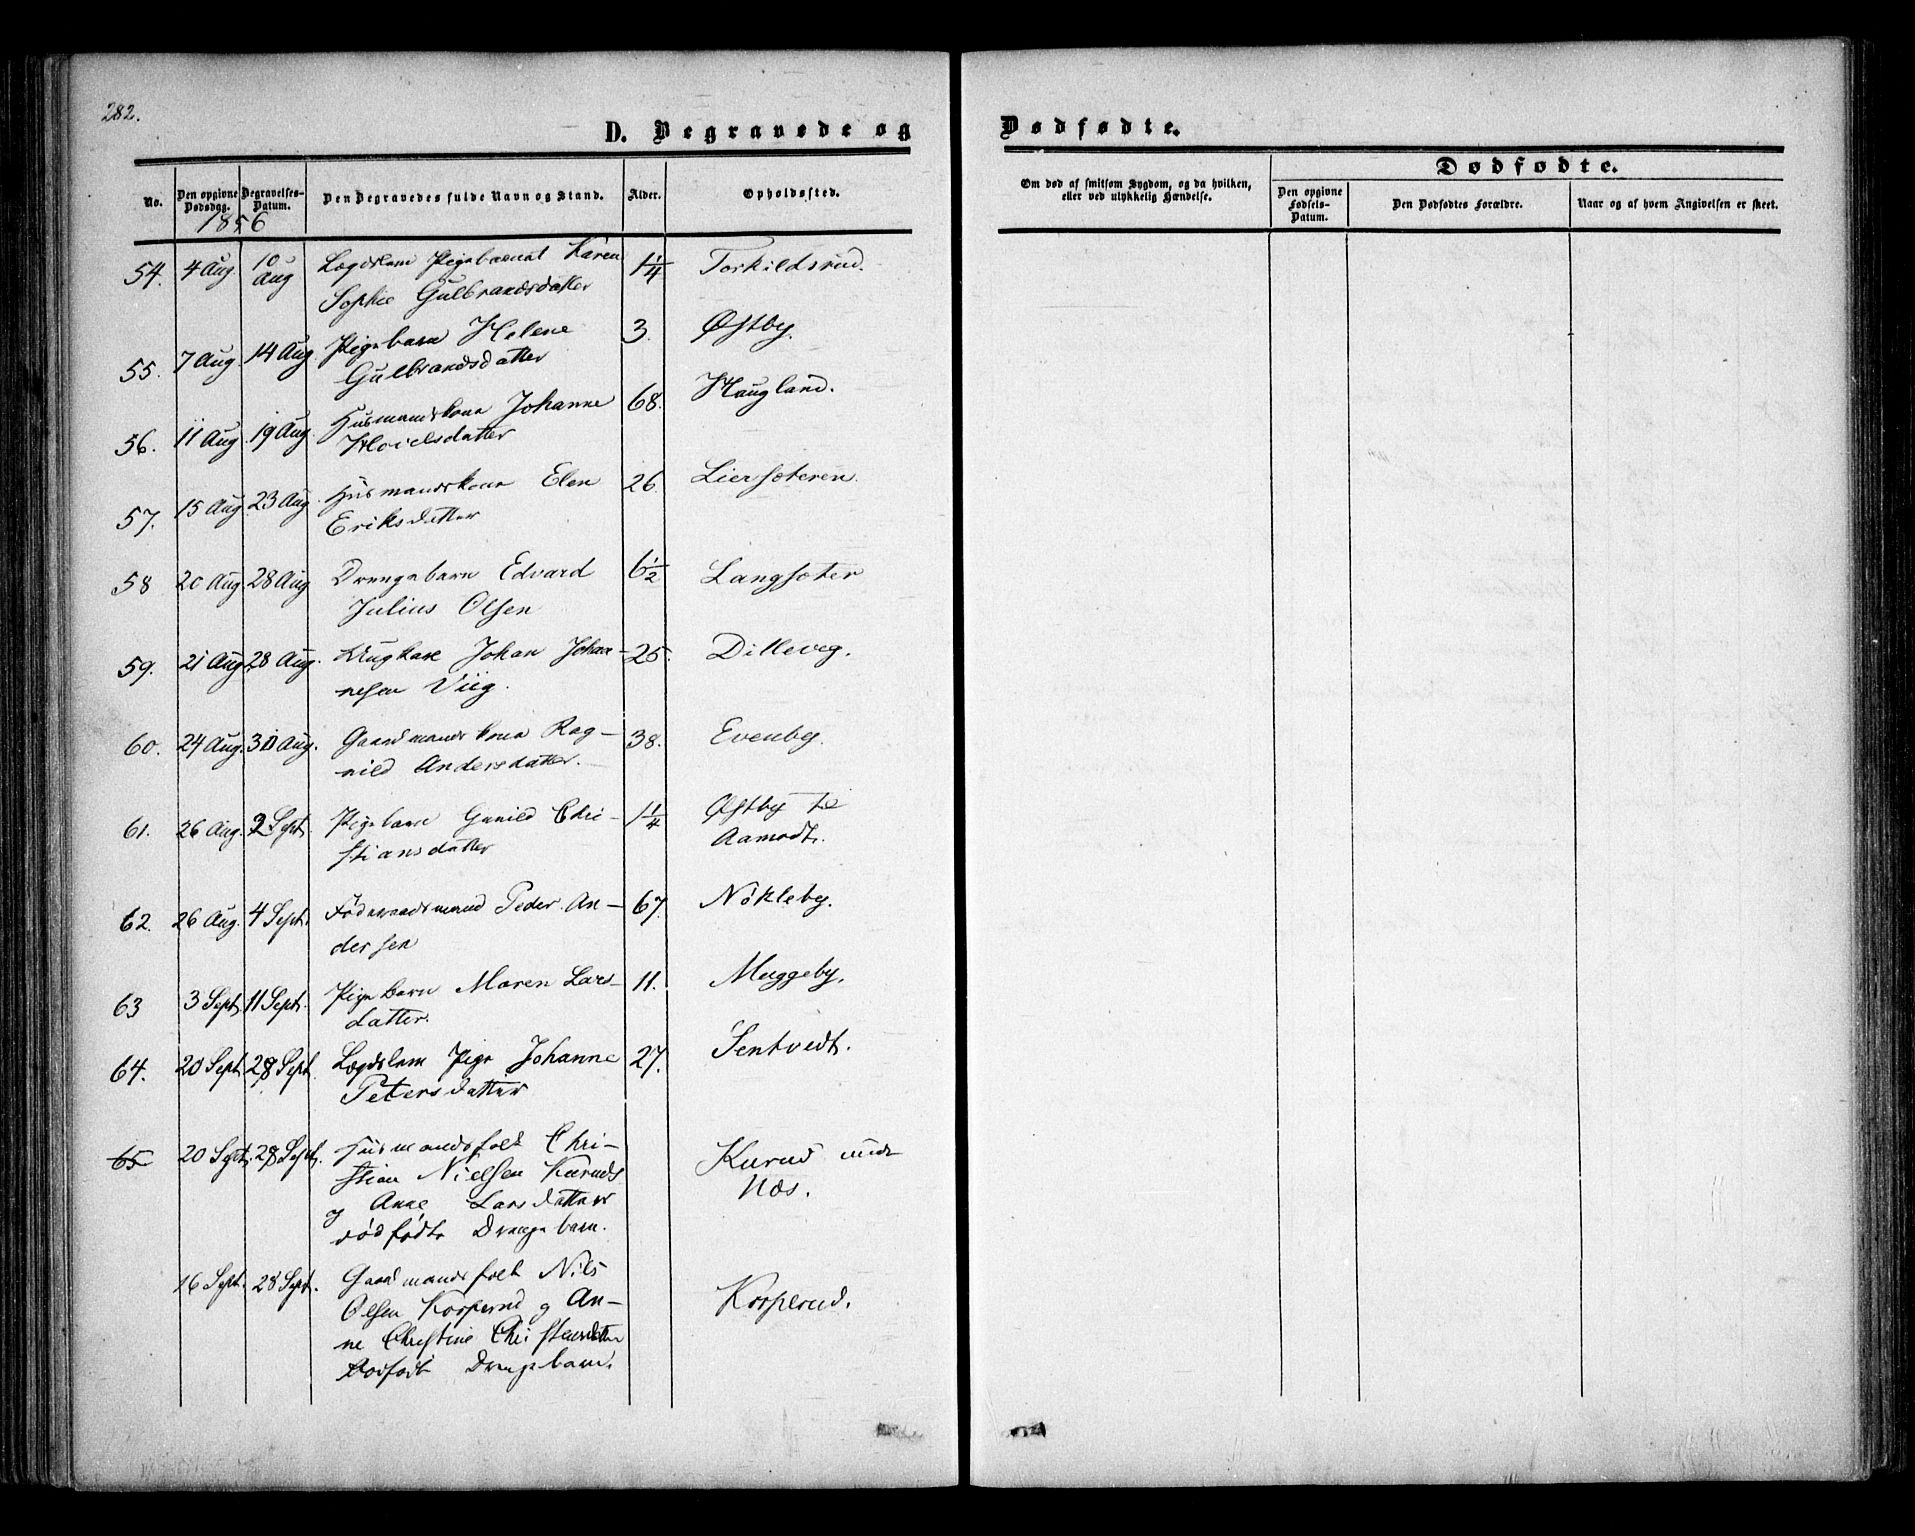 282.
D. Begravede og
Dødfødte.
No.
Den opgivne Dødsdag.
Begravelses-Datum.
Den Begravedes fulde Navn og Stand.
Alder.
Opholdssted.
Om død af smitsom Sygdom, og da hvilken,
eller ved ulykkelig Hændelse.
Dødfødte.
Den opgivne Fødsels-Datum.
Den Dødfødtes Forældre.
Naar og af hvem Angivelsen er skeet.
1856
54. 4 Aug 10 Aug Lægdslem Pigebarnet Karen 1 1/4 Torkildsrud.
Sophie Gulbrandsdatter
55. 7 Aug 14 Aug. Pigebarn Helene 3. Østby.
Gulbrandsdatter
56. 11 Aug 19 Aug. Husmandskone Johanne 68. Haugland.
57. 15 Aug 23 Aug. Husmandskone Elen 26. Liersæteren.
Eriksdatter
58 20 Aug. 28 Aug Drengebarn Edvard 6 1/2 Langsæter
Julius Olsen
59. 21 Aug. 28 Aug. Ungkarl Johan Johan- 25. Dilleveg.
nesen Viig.
60. 24 Aug. 31 Aug. Gaardmandskone Rag- 38. Evenby.
nild Andersdatter.
61. 26 Aug. 2 Sept. Pigebarn Gunild Chri- 1 1/4 Østby
stiansdatter Aamodt.
62. 26 Aug. 4 Sept. Føderaadsmand Peder An- 67. Nökleby.
dersen
63 3 Sept. 11 Sept. Pigebarn Maren Lars- 11. Muggeby.
datter.
64. 20 Sept. 28 Sept. Lægdslem Pige Johanne 27. Sentvedt.
Petersdatter
65 20 Sept. 28 Sept. Husmandsfolk Chri- Kurud under
stian Nielsen Kuruds Næs.
og Anne Larsdatters
dødfødte Drengebarn.
16 Sept. 28 Sept. Gaardmandsfolk Nils Korperud.
Olsen Korperud og An-
ne Christine Christensdatter
Dødfødt Drengebarn.